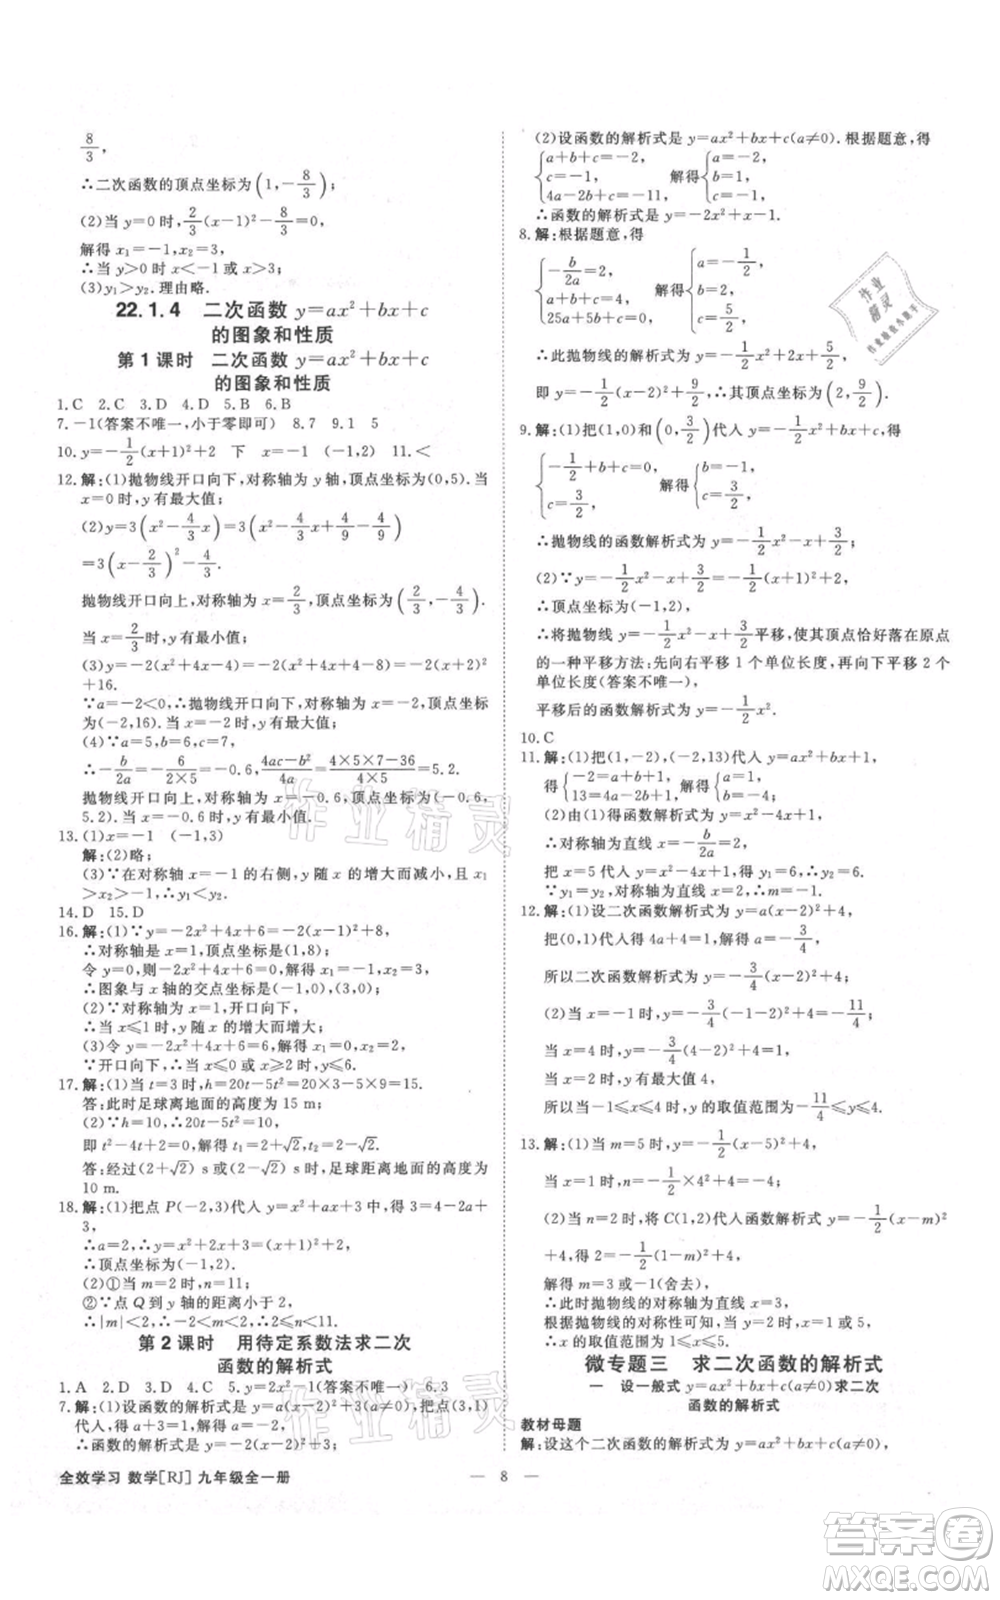 8/3,
∴二次函数的顶点坐标为(1,-8/3);
(2)当 y=0时,2/3(x-1)²-8/3=0,
解得 x₁=-1,x₂=3;
∴当 y>0时,x<-1 或 x>3;
(3)y₁>y₂.理由略.
22.1.4 二次函数 y=ax²+bx+c
的图象和性质
第1课时 二次函数 y=ax²+bx+c
的图象和性质
1.C 2.C 3.D 4.D 5.B 6.B
7.-1(答案不唯一,小于零即可) 8.7 9.1 5
10.y=-1/2(x+1)² 下 x=-1 (-1,0) 11.<
12.解:(1)抛物线开口向下,对称轴为 y 轴,顶点坐标为(0,5).当
x=0时,y有最大值;
(2)y=3(x²-4/3x)=3(x²-4/3x+4/9-4/9)
=3(x-2/3)²-4/3.
抛物线开口向上,对称轴为 x=2/3,顶点坐标为(2/3,-4/3).
当 x=2/3时,y有最小值;
(3)y=-2(x²+4x)=-2(x²+4x+4-4)=-2(x+2)²
+16.
∵a=-2<0,∴抛物线开口向下,对称轴为 x=-2,顶点坐
标为(-2,16).当 x=-2时,y有最大值;
(4)∵a=5,b=6,c=7,
∴-b/2a=-6/(2×5)=-0.6,(4ac-b²)/4a=(4×5×7-36)/(4×5)=5.2.
抛物线开口向上,对称轴为 x=-0.6,顶点坐标为(-0.6,
5.2).当 x=-0.6时,y有最小值.
13.(1)x=-1 (-1,3)
解:(2)略;
(3)∵在对称轴 x=-1的右侧,y随 x的增大而减小,且 x₁
>x₂>-1,∴y₁<y₂.
14.D 15.D
16.解:(1)∵y=-2x²+4x+6=-2(x-1)²+8,
∴对称轴是 x=1,顶点坐标是(1,8);
令 y=0,则-2x²+4x+6=0,解得 x₁=-1,x₂=3,
∴图象与 x 轴的交点坐标是(-1,0),(3,0);
(2)∵对称轴为 x=1,开口向下,
∴当 x≤1时,y随 x的增大而增大;
(3)令 y=-2x²+4x+6=6,解得 x₁=0,x₂=2.
∵开口向下,∴当 x≤0或 x≥2时,y≤6.
17.解:(1)当 t=3时,h=20t-5t²=20×3-5×9=15.
答:此时足球离地面的高度为 15 m;
(2)∵h=10,∴20t-5t²=10,
即 t²-4t+2=0,解得 t₁=2+√2,t₂=2-√2.
答:经过(2+√2) s或(2-√2) s时,足球距离地面的高度为
10 m.
18.解:(1)把点 P(-2,3)代入 y=x²+ax+3中,得 3=4-2a+
3,
∴a=2,∴y=x²+2x+3=(x+1)²+2,
∴顶点坐标为(-1,2);
(2)①当 m=2时,n=11;
②∵点 Q到 y轴的距离小于2,
∴|m|<2,∴-2<m<2,∴2≤n<11.
第2课时 用待定系数法求二次
函数的解析式
1.A 2.D 3.D 4.C 5.y=2x²-1(答案不唯一) 6.3
7.解:(1)设函数的解析式是 y=a(x-2)²+1.把点(3,1)
代入,得 a+3=1,解得 a=-2,
∴函数的解析式是 y=-2(x-2)²+3;
(2)设函数的解析式是 y=ax²+bx+c(a≠0).根据题意,得
{a+b+c=-2, c=-1, 4a-2b+c=-11, 解得{a=-2, b=1, c=-1,
∴函数的解析式是 y=-2x²+x-1.
8.解:根据题意,得
{-b/2a=2, a+b+c=4, 25a+5b+c=0, 解得{a=-1/2, b=2, c=5/2,
∴此抛物线的解析式是 y=-1/2x²+2x+5/2,
即 y=-1/2(x-2)²+9/2,∴其顶点坐标为(2,9/2).
9.解:(1)把(1,0)和(0,3/2)代入 y=-1/2x²+bx+c,得
{-1/2+b+c=0, c=3/2, 解得{b=-1, c=3/2,
∴抛物线的函数解析式为 y=-1/2x²-x+3/2;
(2)∵y=-1/2x²-x+3/2=-1/2(x+1)²+2,
∴顶点坐标为(-1,2),
∴将抛物线 y=-1/2x²-x+3/2平移,使其顶点恰好落在原点
的一种平移方法:先向右平移 1个单位长度,再向下平移 2个
单位长度(答案不唯一),
平移后的函数解析式为 y=-1/2x².
10.C
11.解:(1)把(1,-2),(-2,13)代入 y=ax²+bx+1,
得{-2=a+b+1, 13=4a-2b+1, 解得{a=1, b=-4;
(2)由(1)得函数解析式为 y=x²-4x+1,
∴对称轴为直线 x=-b/2a=2,
把 x=5代入 y=x²-4x+1,得 y₁=6,∴y₂=12-y₁=6.
∵y₁=y₂,对称轴为直线 x=2,∴m=4-5=-1.
12.解:(1)设二次函数解析式为 y=a(x-2)²+4,
把(0,1)代入,得 4a+4=1,解得 a=-3/4,
所以二次函数解析式为 y=-3/4(x-2)²+4;
(2)当 x=-1时,y=-3/4(-1-2)²+4=-11/4,
当 x=3时,y=-3/4(3-2)²+4=13/4,
当 x=2时,y有最大值 4,
所以当-1≤x≤3时,y的取值范围为-11/4≤y≤4.
13.解:(1)当 m=5时,y=-1/2(x-5)²+4,
当 x=0时,n=-1/2×5²+4=-17/2;
(2)当 n=2时,将 C(0,2)代入函数解析式 y=-1/2(x-m)²
+4,得 2=-1/2(1-m)²+4,
解得 m=3或-1(舍去),
∴此时抛物线的对称轴为 x=3,
根据抛物线的对称性可知,当 y=2时,x=1或 5,
∴x的取值范围为 1≤x≤5.
微专题三 求二次函数的解析式
一 设一般式 y=ax²+bx+c(a≠0)求二次
函数的解析式
教材母题
解:设这个二次函数的解析式为 y=ax²+bx+c.
全效学习 数学[RJ] 九年级全一册
— 8 —
作业精灵
答案圈
MXQE.COM